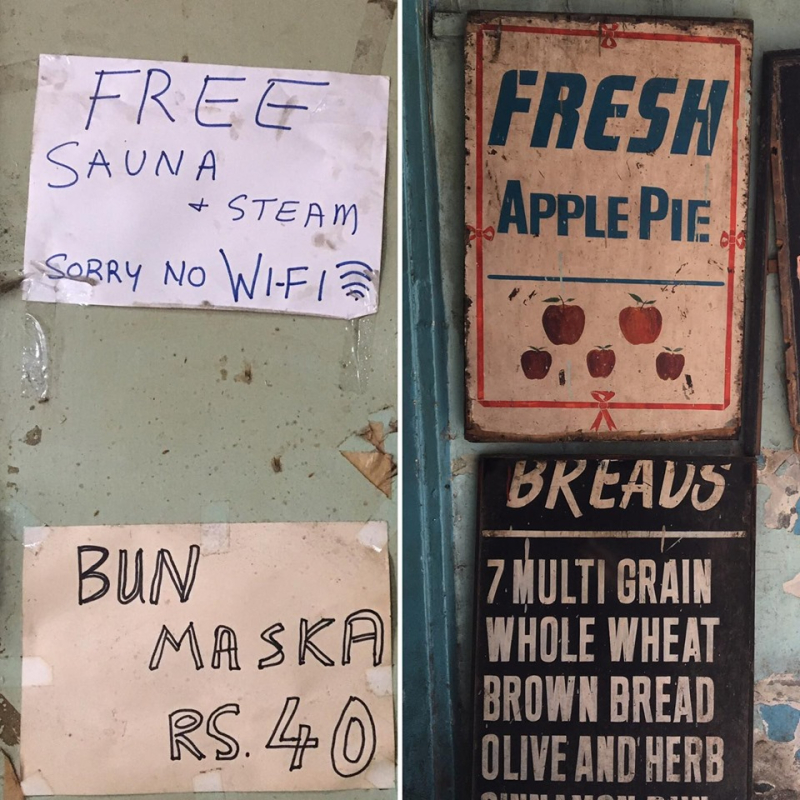 FREE
SAUNA
+ STEAM
SORRY NO WI-FI
BUN
MASKA
RS. 40
FRESH
APPLE PIE
BREADS
7 MULTI GRAIN
WHOLE WHEAT
BROWN BREAD
OLIVE AND HERB
CINNAMON BUN